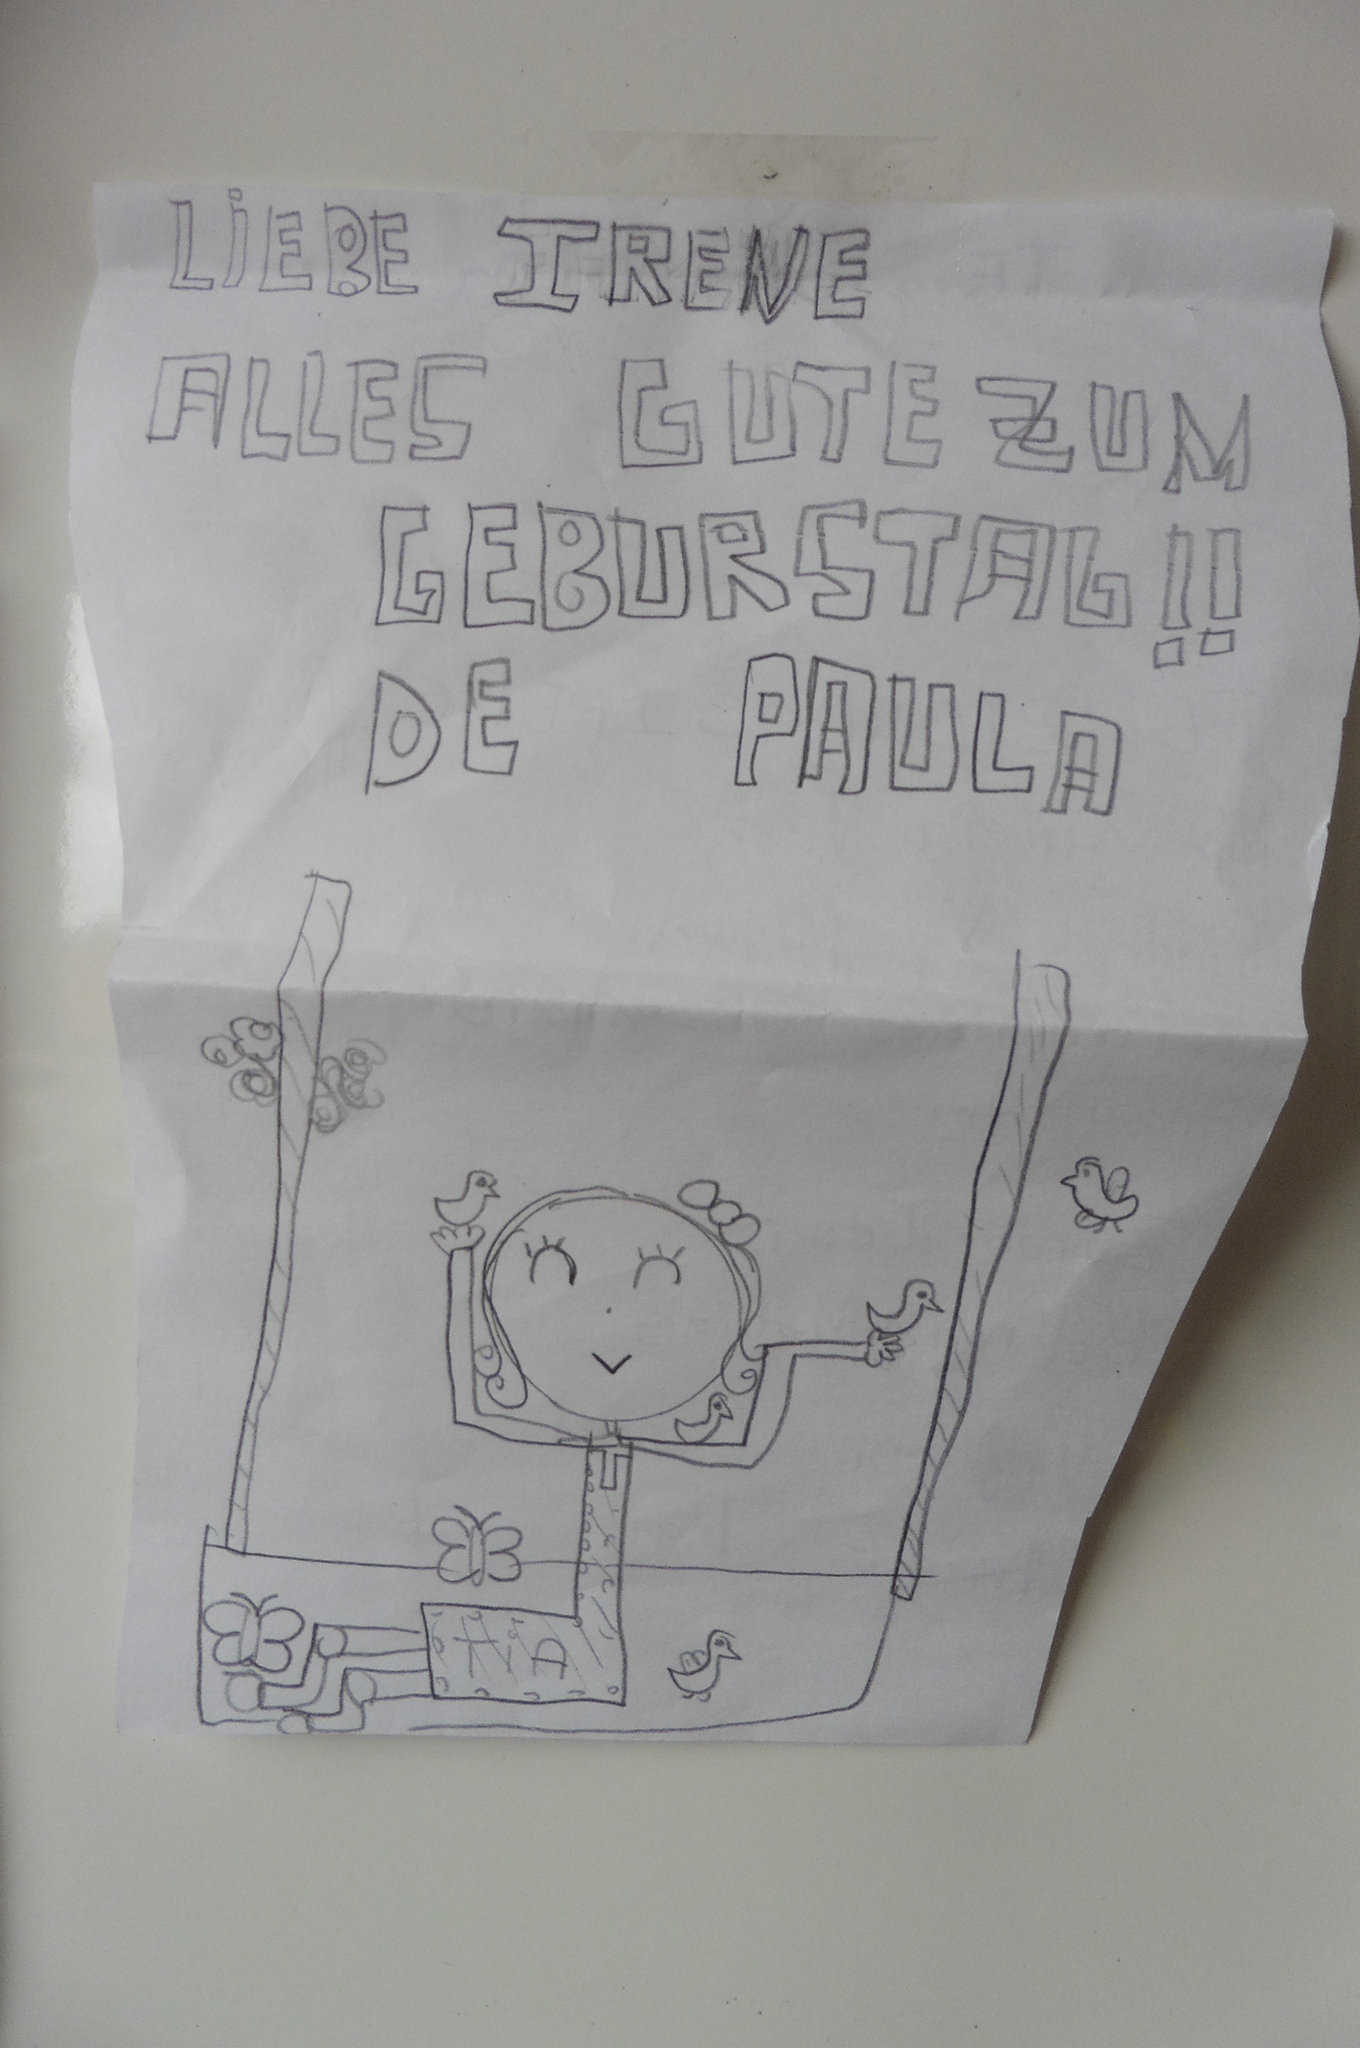 LiEBE IRENE
ALLES GUTE ZUM
GEBURSTAG!!
DE PAULA